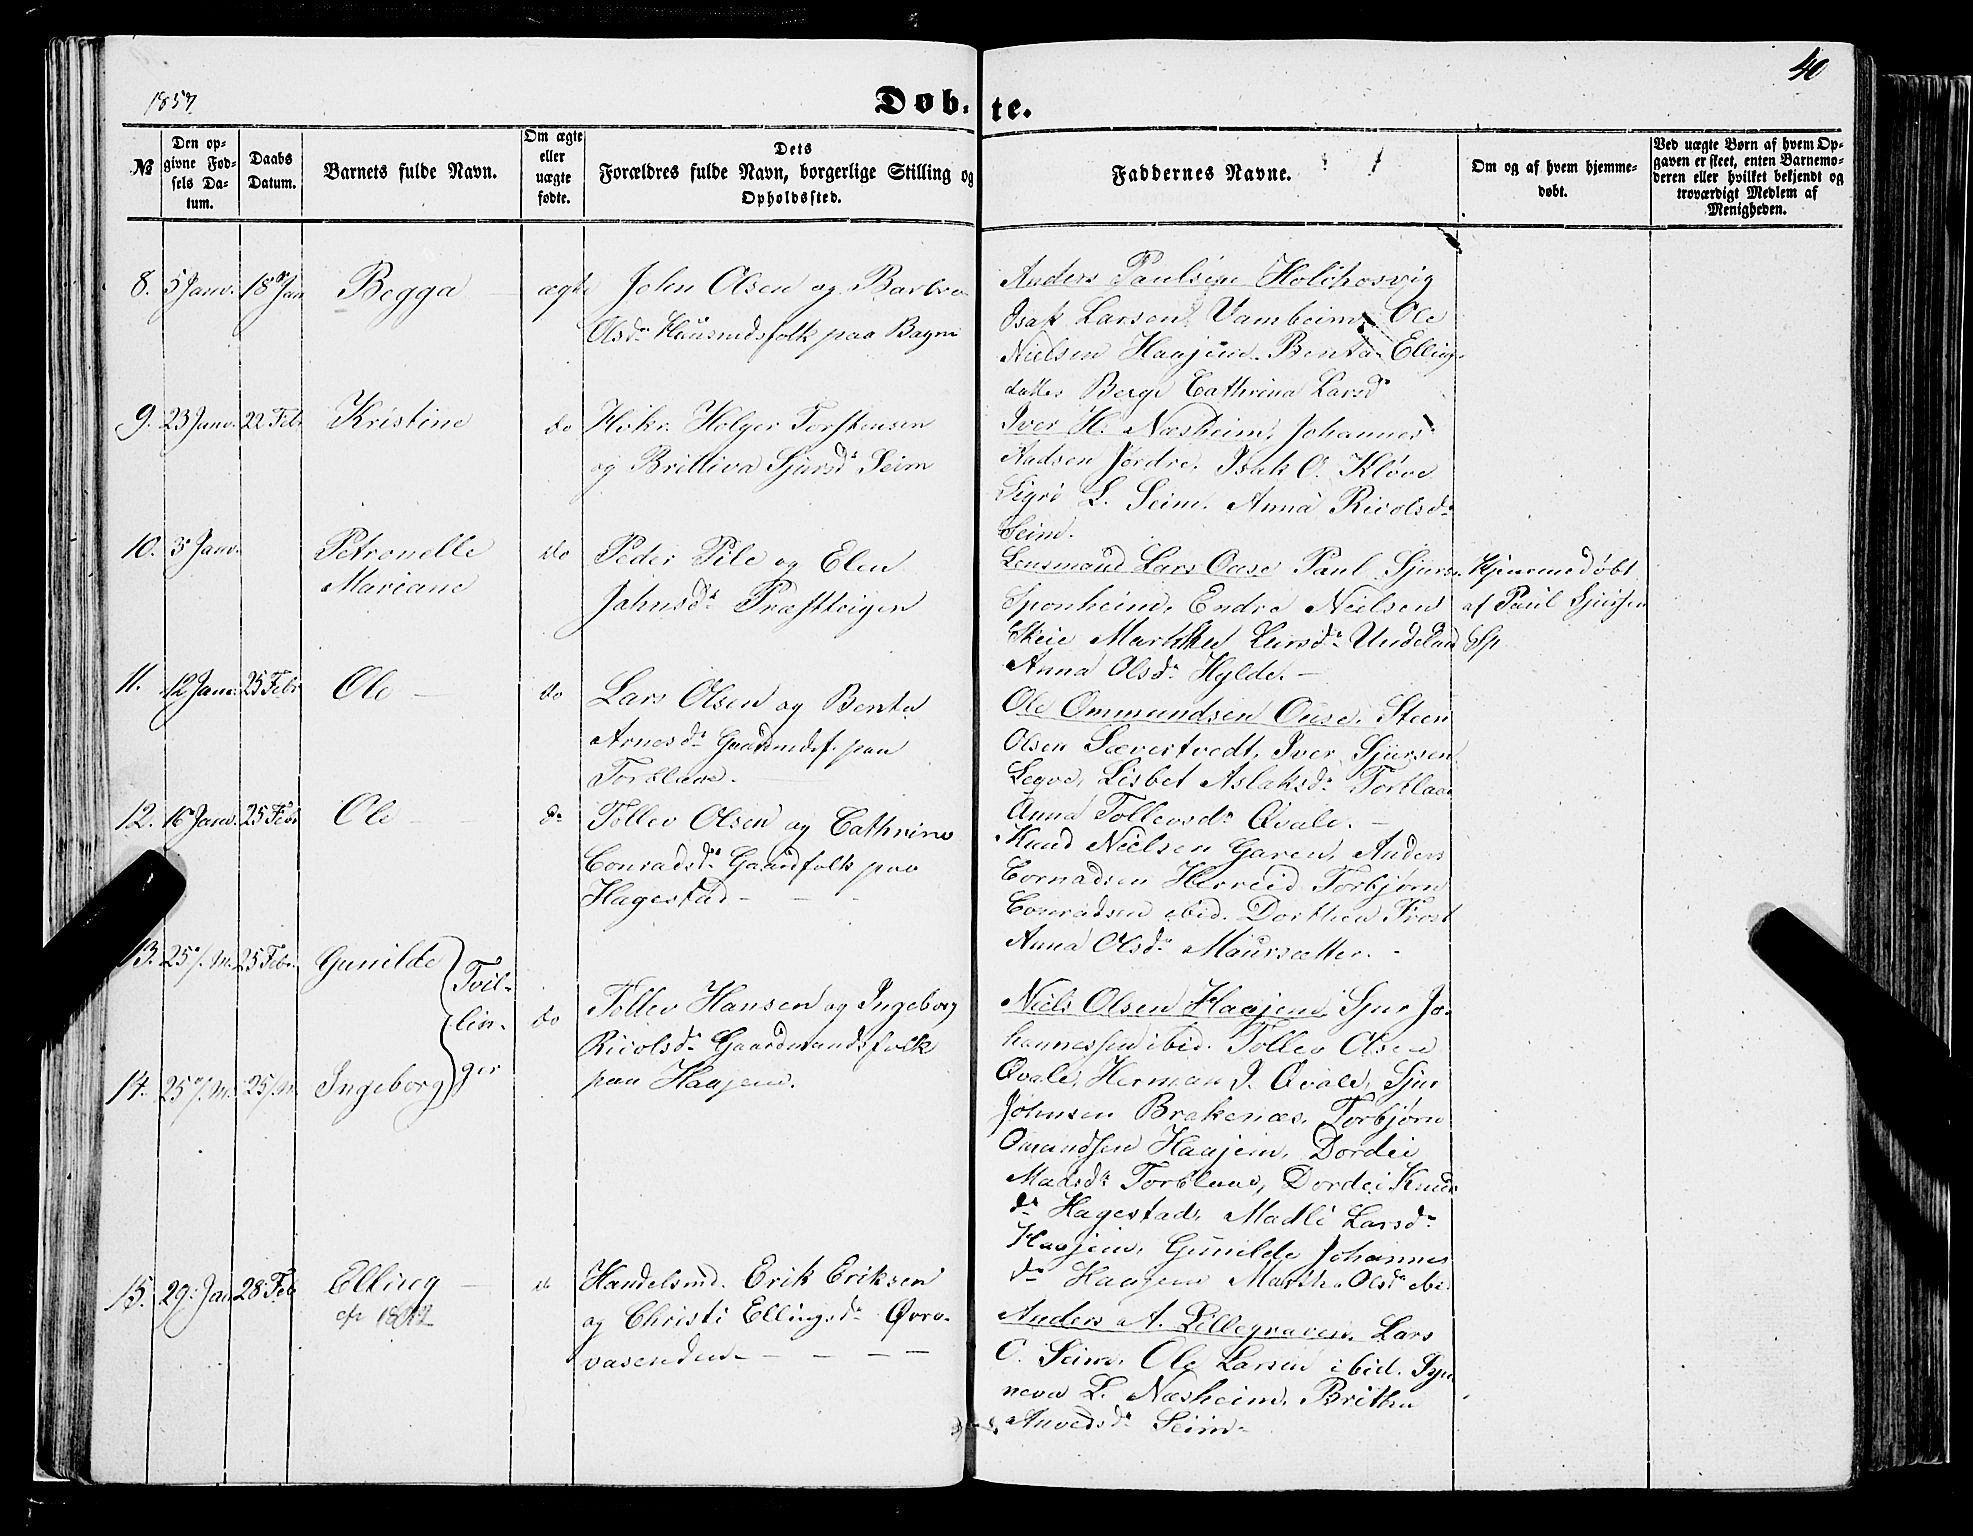 1857
40
Døb- te.
№
Den op-
givne Fød-
sels Da-
tum.
Daabs
Datum.
Barnets fulde Navn.
Om ægte
eller
uægte
fødte.
Dets
Forældres fulde Navn, borgerlige Stilling og
Opholdssted.
Faddernes Navne.
Om og af hvem hjemme-
døbt.
Ved uægte Børn af hvem Op-
gaven er skeet, enten Barnemo-
deren eller hvilket bekjendt og
troværdigt Medlem af
Menigheden.
8. 5 Janv. 18 Jan Begga ægte John Olsen og Barbro
Olsdr Huusmdsfolk paa
Anders Paulsen
Isak Larsen Vambeim Ole
Nielsen Haajem. Benta Elling
datter Berge Cathrina Larsd
9. 23 Janv. 22 Feb Kristine do Holger Torstensen
og Brittiva Sjursdr Seim
Iver H. Næsheim, Johannes
Jordre, Isak O. Kløve
Sigri L. Seim, Anna Ricolsdr
Seim.
10. 3 Janv. Petronelle
Mariane
do Peder Pile og Elen
Johnsdr Præstteigen
Lensmand Lars Ouse Paul Sjurs.
Sponheim, Endre Nielsen
Skeie Marthe Larsdr Undeland
Anna Olsdr Hylde. —
Hjemmedøbt
af Paul Sjursen
Sp
11. 12 Janv. 25 Febr Ole — do Lars Olsen og Benta
Arnesdr Gaardmdsf. paa
Torblaae.
Ole Ommundsen Ouse, Steen
Olsen Sævertvedt, Iver Sjursen
Legve, Lisbet Aslaksdr Torblaae
Anna Tollevsdr Qvale. —
12. 16 Janv. 25 Feb Ole — dr Tollev Olsen og Cathrine
Conradsdr Gaardfolk paa
Hagestad - - -
Knud Nielsen Garen, Anders
Cornadsen Herreid Torbjørn
Conradsen ibid. Dorthea Frost
Anna Olsdr Maursætter. -
13. 25 25 Feb. Gunilde
Tvil-
lin-
ger
14. 25 25 Ingeborg
do Tollev Hansen og Ingeborg
Ricolsdr Gaardmandsfolk
paa Haajem.
Niels Olsen Haajem, Sjur Jo-
hannessen ibid. Tollev Olsen
Qvale, Herman J. Qvale, Sjur
Johnsen Brakenæs, Torbjørn
Omundsen Haajem, Dordei
Madsdr Torblaae, Dordei Knuds
dr Hagestad, Madli Larsdr
Haajem, Gunilde Johannes
dr Haajem Martha Olsdr ibid.
15. 29. Jan 28. Feb Elling —
do Handelsmd. Erik Eriksen
og Christi Ellingsdr Øvre-
vasenden — — — —
Anders A. Lillegraven, Lars
O. Seim, Ole Larsen ibid. Syn
neva L. Næsheim, Britha
Anvedsdr Seim -